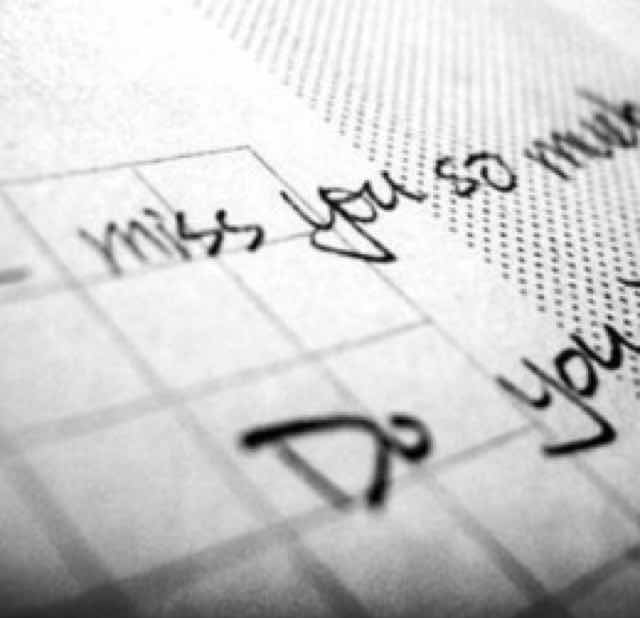 miss you so much
Do you